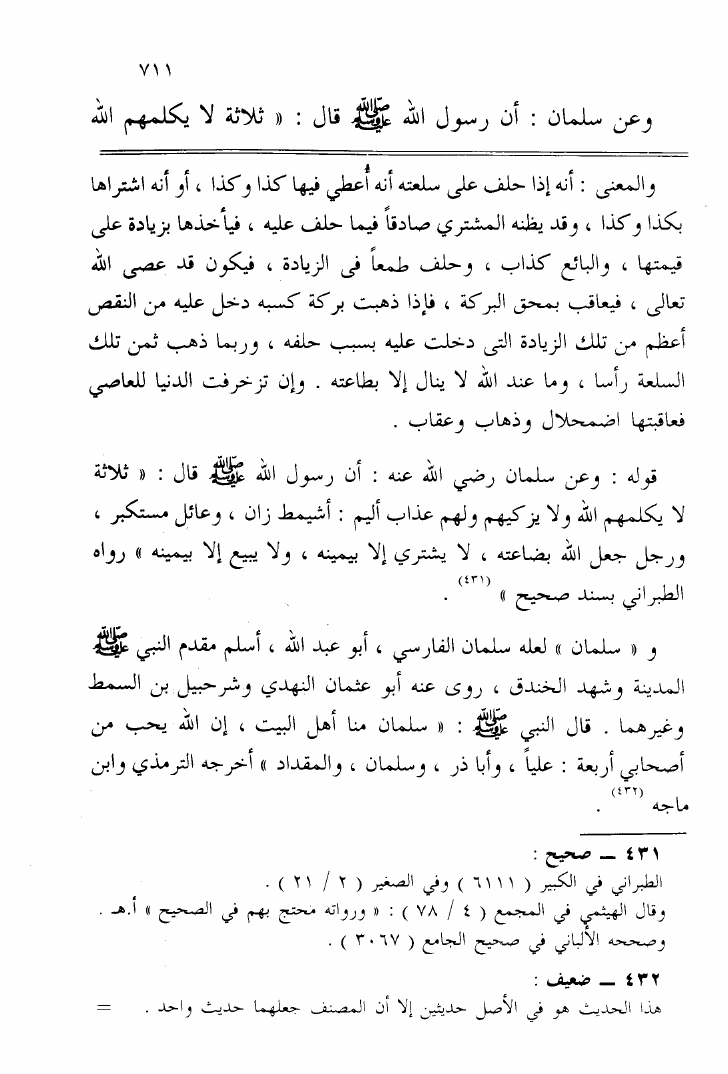 ٧١١
وعن سلمان : أن رسول الله ﷺ قال : « ثلاثة لا يكلمهم الله
والمعنى : أنه إذا حلف على سلعته أنه أُعطي فيها كذا وكذا ، أو أنه اشتراها
بكذا وكذا ، وقد يظنه المشتري صادقاً فيما حلف عليه ، فيأخذها بزيادة على
قيمتها ، والبائع كذاب ، وحلف طمعاً فى الزيادة ، فيكون قد عصى الله
تعالى ، فيعاقب بمحق البركة ، فإذا ذهبت بركة كسبه دخل عليه من النقص
أعظم من تلك الزيادة التى دخلت عليه بسبب حلفه ، وربما ذهب ثمن تلك
السلعة رأسا ، وما عند الله لا ينال إلا بطاعته . وإن تزخرفت الدنيا للعاصي
فعاقبتها اضمحلال وذهاب وعقاب .
قوله : وعن سلمان رضي الله عنه : أن رسول الله ﷺ قال : « ثلاثة
لا يكلمهم الله ولا يزكيهم ولهم عذاب أليم : أشيمط زان ، وعائل مستكبر ،
ورجل جعل الله بضاعته ، لا يشتري إلا بيمينه ، ولا يبيع إلا بيمينه » رواه
الطبراني بسند صحيح » (٤٣١) .
و « سلمان » لعله سلمان الفارسي ، أبو عبد الله ، أسلم مقدم النبي ﷺ
المدينة وشهد الخندق ، روى عنه أبو عثمان النهدي وشرحبيل بن السمط
وغيرهما . قال النبي ﷺ : « سلمان منا أهل البيت ، إن الله يحب من
أصحابي أربعة : علياً ، وأبا ذر ، وسلمان ، والمقداد » أخرجه الترمذي وابن
ماجه (٤٣٢) .
٤٣١ ــ صحيح :
الطبراني في الكبير ( ٦١١١ ) وفي الصغير ( ٢ / ٢١ ) .
وقال الهيثمي في المجمع ( ٤ / ٧٨ ) : « ورواته محتج بهم في الصحيح » أ.هـ .
وصححه الألباني في صحيح الجامع ( ٣٠٦٧ ) .
٤٣٢ ــ ضعيف :
هذا الحديث هو في الأصل حديثين إلا أن المصنف جعلهما حديث واحد . =